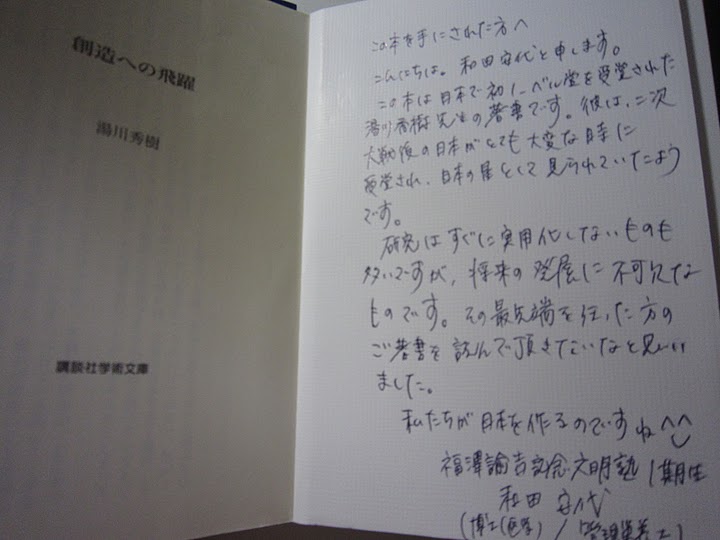 創造への飛躍
湯川秀樹
講談社学術文庫
この本を手にされた方へ
こんにちは。和田安代と申します。
この本は日本で初ノーベル賞を受賞された
湯川秀樹先生の著書です。彼は、二次
大戦後の日本がとても大変な時に
受賞され、日本の星として見られていたよう
です。
研究はすぐに実用化しないものも
多いですが、将来の発展に不可欠な
ものです。その最先端を行った方の
ご著書を読んで頂きたいなと思い
ました。
私たちが日本を作るのですね^^
福澤諭吉記念文明塾1期生
和田安代
(博士(医学)/管理栄養士)